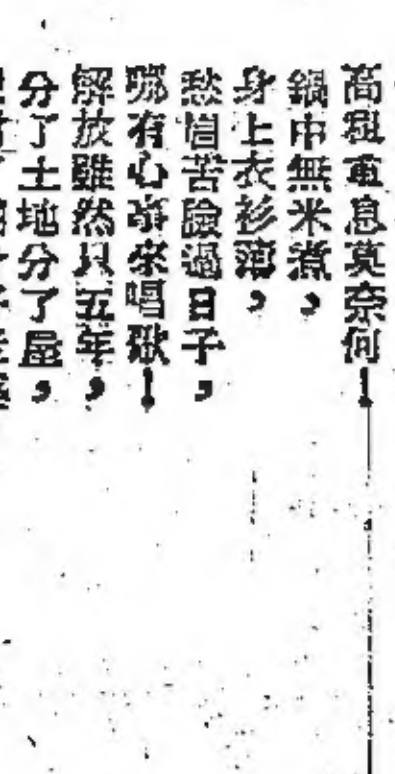 高租重息莫奈何！
鍋中無米煮，
身上衣衫薄，
愁眉苦臉過日子，
哪有心來唱歌！
解放雖然只五年，
分了土地分了屋，